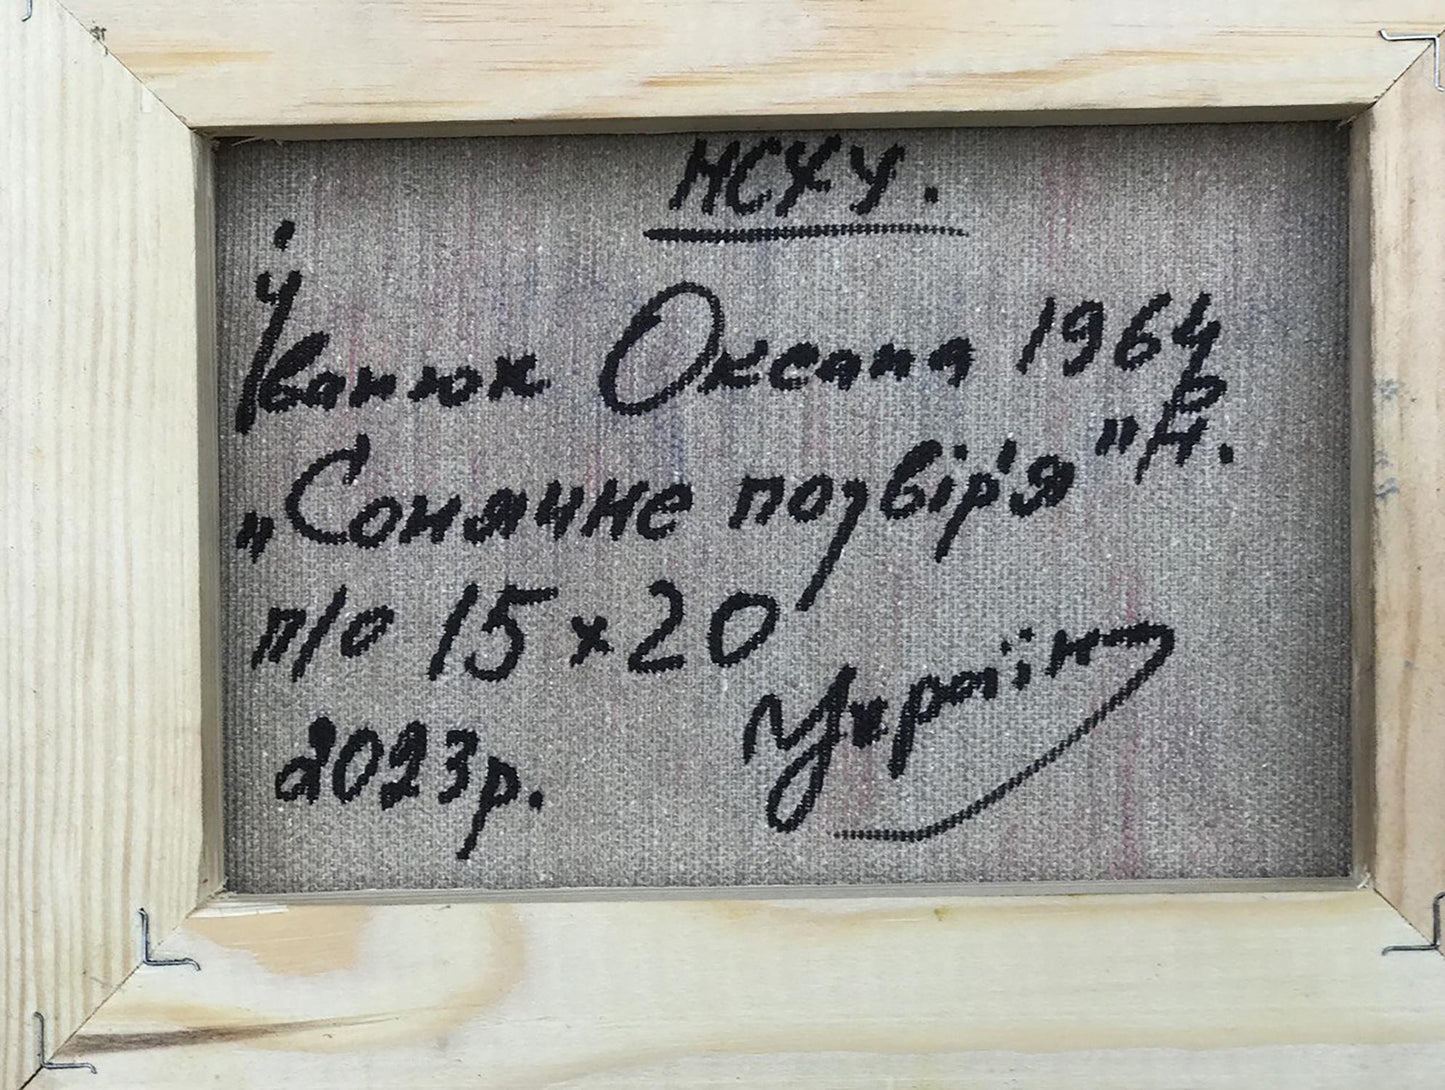 НСХУ.
Іванюк Оксана 1964
р.н.
„Сонячне подвір'я"
п/о 15×20
Україна
2023р.